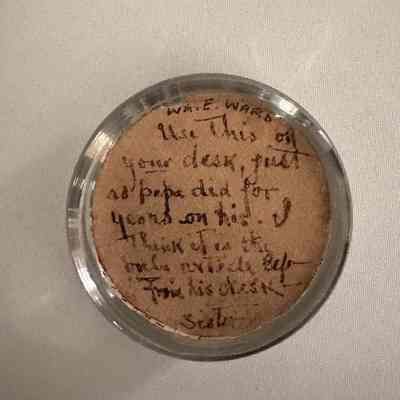 WM. E. WARD
Use This on
your desk, just
as papa did for
years on his. I
Think it is the
only article left
From his desk
Sister